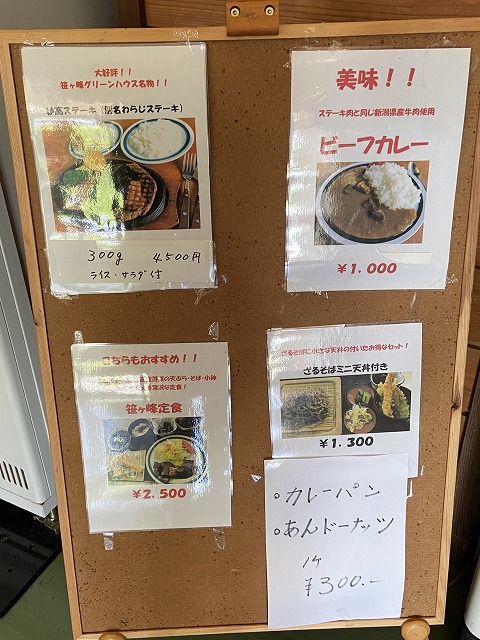 大好評！！
笹ヶ峰グリーンハウス名物！！
妙高ステーキ（別名わらじステーキ）
300g 4500円
ライス・サラダ付
美味！！
ステーキ肉と同じ新潟県産牛肉使用
ビーフカレー
￥1.000
こちらもおすすめ！！
の天ぷら・そば・小鉢
な定食！
笹ヶ峰定食
￥2.500
ざるそばに小さな天丼の付いたお得なセット！
ざるそばミニ天丼付き
￥1.300
○カレーパン
○あんドーナッツ
1ケ
¥300.-